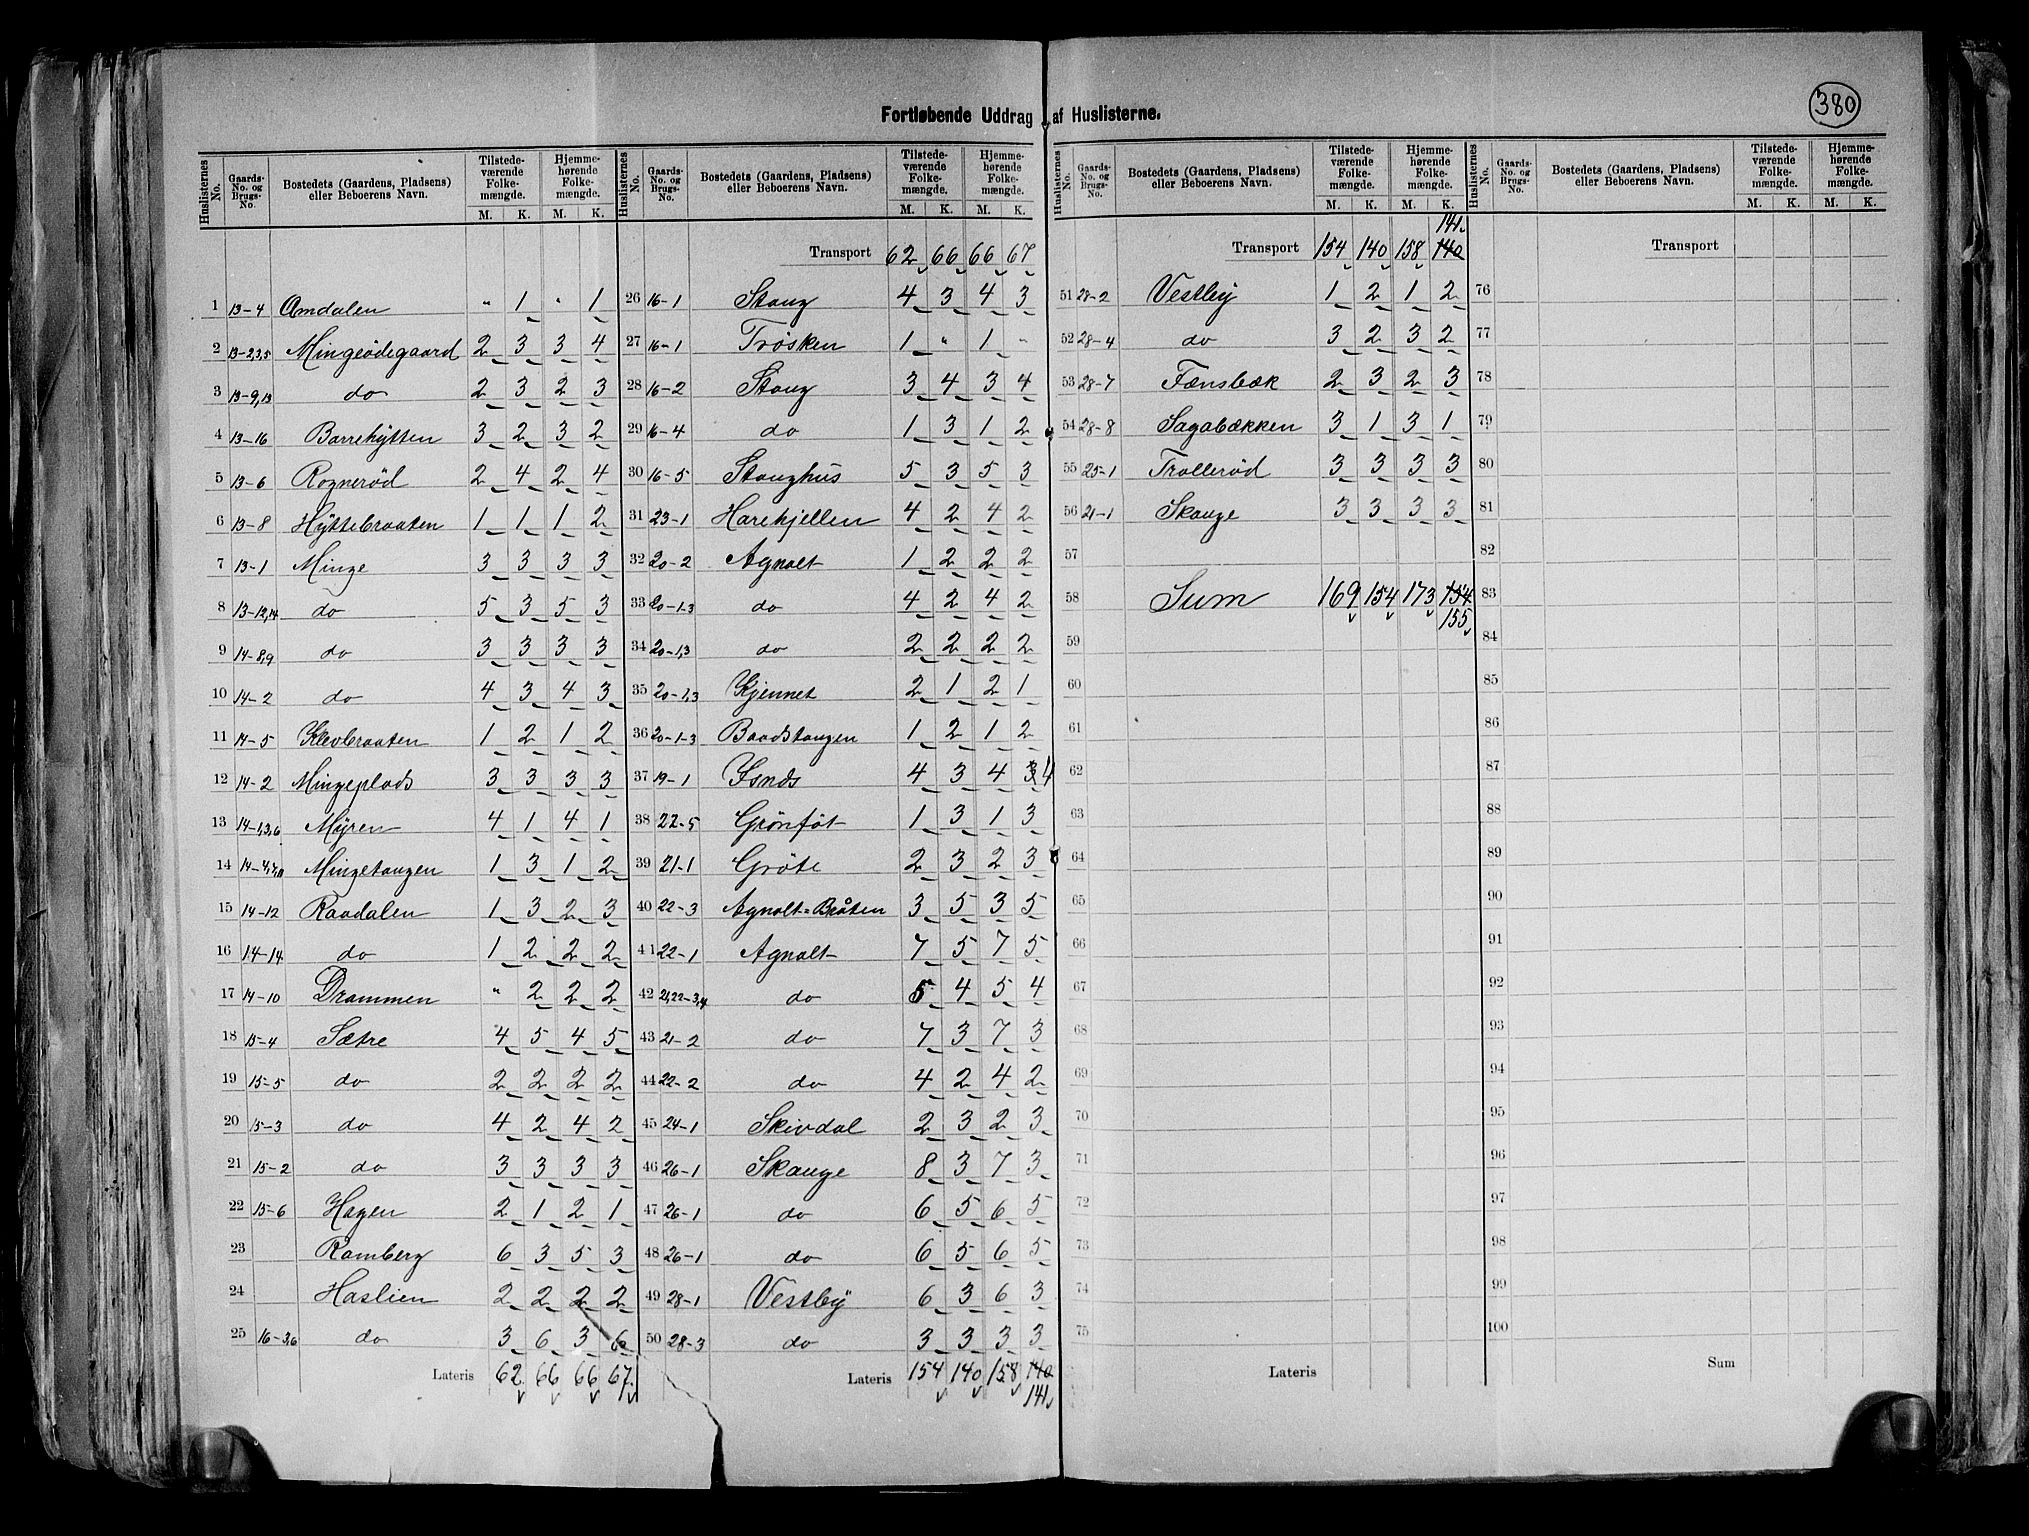 380
Fortløbende Uddrag af Huslisterne.
Huslisternes No. | Gaards-No. og Brugs-No. | Bostedets (Gaardens, Pladsens) eller Beboerens Navn. | Tilstedeværende Folkemængde. M. K. | Hjemmehørende Folkemængde. M. K.
1 13-4 Amdalen " 1 " 1
2 13-2,3,5 Mingeødegaard 2 3 3 4
3 13-9,13 do 2 3 2 3
4 13-16 Barrehytten 3 2 3 2
5 13-6 Rognerød 2 4 2 4
6 13-8 Hyttebraaten 1 1 1 2
7 13-1 Minge 3 3 3 3
8 13-12,14 do 5 3 5 3
9 14-8,9 do 3 3 3 3
10 14-2 do 4 3 4 3
11 14-5 Klevbraaten 1 2 1 2
12 14-2 Mingeplads 3 3 3 3
13 14-1,3,6 Myren 4 1 4 1
14 Mingetangen 1 3 1 2
15 14-12 Raadalen 1 3 2 3
16 14-14 do 1 2 2 2
17 14-10 Drammen " 2 2 2
18 15-4 Sætre 4 5 4 5
19 15-5 do 2 2 2 2
20 15-3 do 4 2 4 2
21 15-2 do 3 3 3 3
22 15-6 Hagen 2 1 2 1
23 Ramberg 6 3 5 3
24 Haslien 2 2 2 2
25 16-3,6 do 3 6 3 6
Lateris 62 66 66 67
Huslisternes No. | Gaards-No. og Brugs-No. | Bostedets (Gaardens, Pladsens) eller Beboerens Navn. | Tilstedeværende Folkemængde. M. K. | Hjemmehørende Folkemængde. M. K.
Transport 62 66 66 67
26 16-1 Stang 4 3 4 3
27 16-1 Trøsken 1 " 1 "
28 16-2 Stang 3 4 3 4
29 16-4 do 1 3 1 2
30 16-5 Stanghus 5 3 5 3
31 23-1 Harekjellen 4 2 4 2
32 20-2 Agnalt 1 2 2 2
33 20-1-3 do 4 2 4 2
34 20-1,3 do 2 2 2 2
35 20-1,3 Kjennet 2 1 2 1
36 20-1-3 Baadstangen 1 2 1 2
37 19-1 Isnæs 4 3 4 3 4
38 22-5 Grønføt 1 3 1 3
39 21-1 Grøte 2 3 2 3
40 22-3 Agnalt=Bråten 3 5 3 5
41 22-1 Agnalt 7 5 7 5
42 21,22-3,4 do 5 4 5 4
43 21-2 do 7 3 7 3
44 22-2 do 4 2 4 2
45 24-1 Skivdal 2 3 2 3
46 26-1 Skauge 8 3 7 3
47 26-1 do 6 5 6 5
48 26-1 do 6 5 6 5
49 28-1 Vestby 6 3 6 3
50 28-3 do 3 3 3 3
Lateris 154 140 158 140
141
Huslisternes No. | Gaards-No. og Brugs-No. | Bostedets (Gaardens, Pladsens) eller Beboerens Navn. | Tilstedeværende Folkemængde. M. K. | Hjemmehørende Folkemængde. M. K.
141
Transport 154 140 158 140
51 28-2 Vestby 1 2 1 2
52 28-4 do 3 2 3 2
53 28-7 Fænsbæk 2 3 2 3
54 28-8 Sagabækken 3 1 3 1
55 25-1 Trollerød 3 3 3 3
56 21-1 Skauge 3 3 3 3
57
58 Sum 169 154 173 154
155
59
60
61
62
63
64
65
66
67
68
69
70
71
72
73
74
75
Lateris
Huslisternes No. | Gaards-No. og Brugs-No. | Bostedets (Gaardens, Pladsens) eller Beboerens Navn. | Tilstedeværende Folkemængde. M. K. | Hjemmehørende Folkemængde. M. K.
Transport
76
77
78
79
80
81
82
83
84
85
86
87
88
89
90
91
92
93
94
95
96
97
98
99
100
Sum